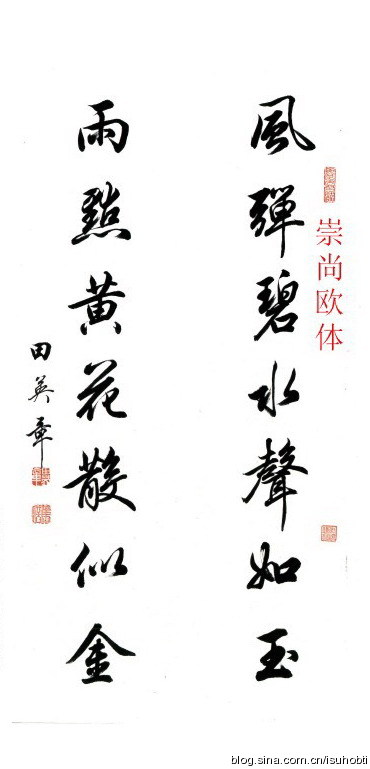 崇尚欧体
風彈碧水聲如玉
雨點黄花散似金
田英章
blog.sina.com.cn/isuhobti